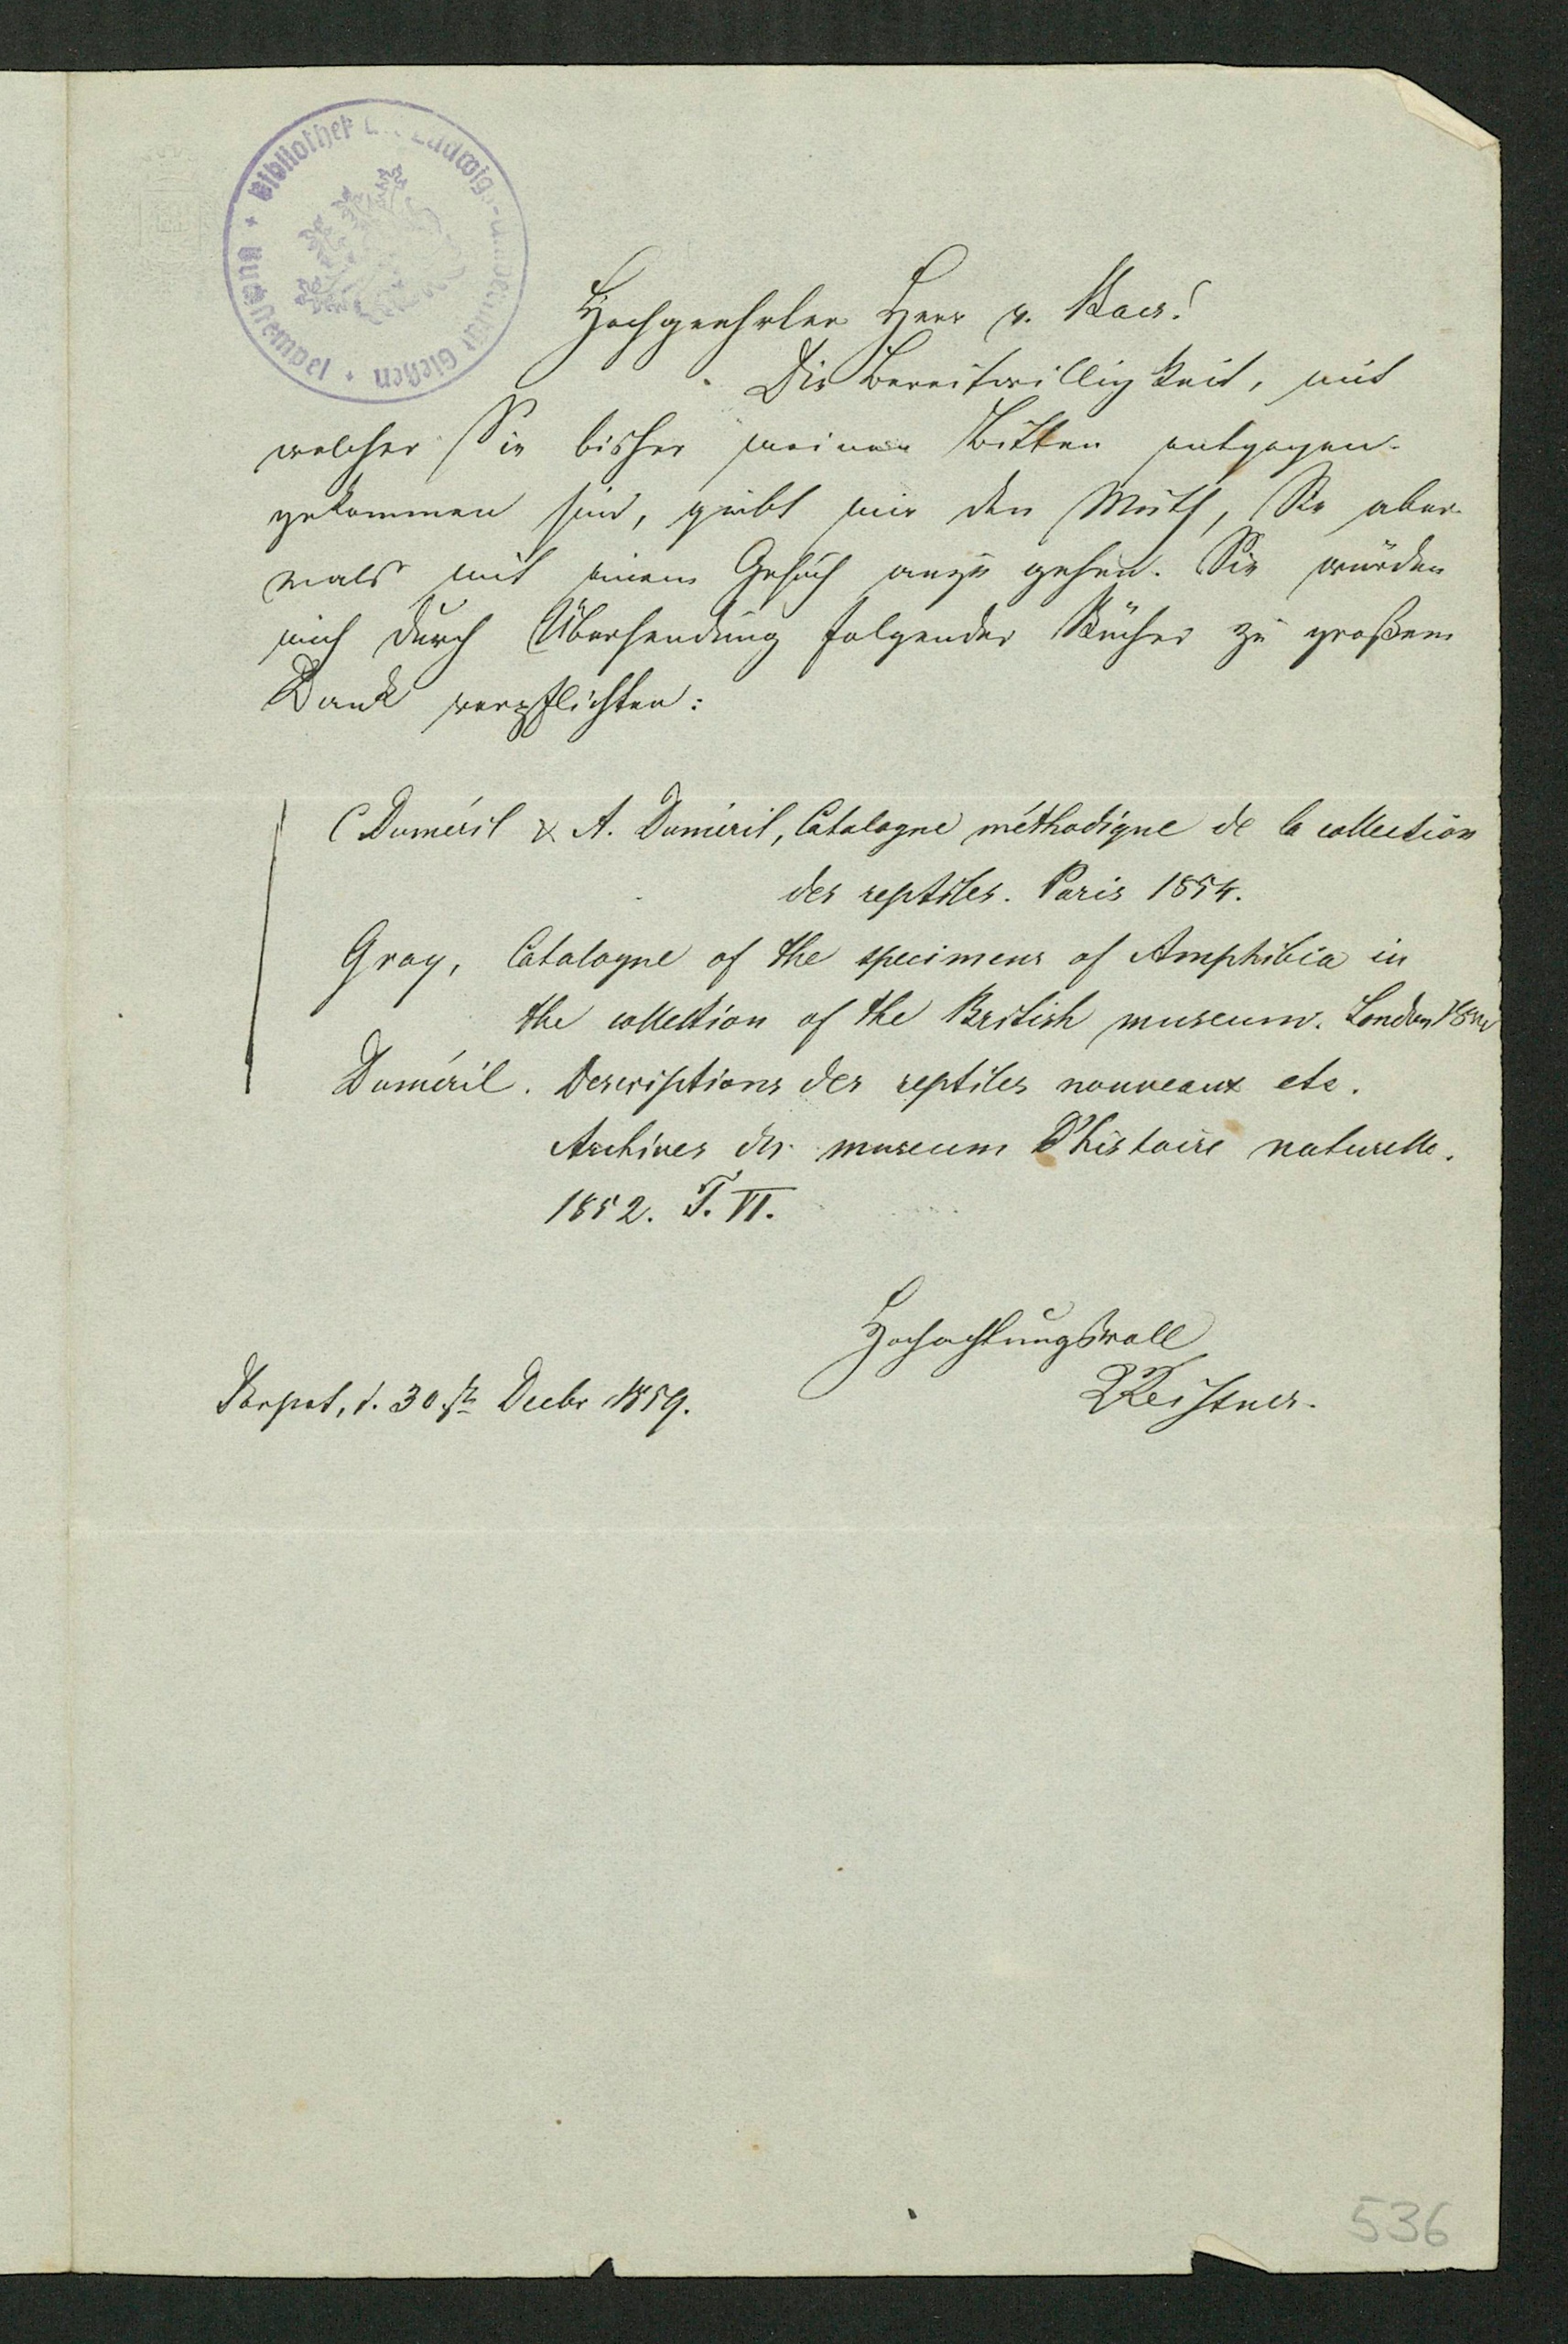 Bibliothek d. Ludwigs-Universität Gießen + Buchstempel +
Hochgeehrter Herr v. Baer!
Die Bereitwilligkeit, mit
welcher Sie bisher meinen Bitten entgegen-
gekommen sind, giebt mir den Muth, Sie aber-
mals mit einem Gesuch anzu gehen. Sie würden
mich durch Übersendung folgender Bücher zu großem
Dank verpflichten:
C Duméril & A. Duméril, Catalogue méthodique de la collection
des reptiles. Paris 1854.
Gray, Catalogue of the specimens of Amphibia in
the collection of the British museum. London
Duméril. Descriptions des reptiles nouveaux etc.
Archives du museum d'histoire naturelle.
1852. T. VI.
Hochachtungsvoll
Dorpat, d. 30 st Decbr 1859.
536